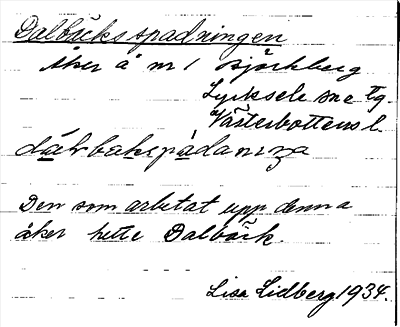 Dalbäcksspadningen
Åker å nr 1 Björkberg
Lycksele sn
Västerbottens l.
Den som arbetat upp denna
åker hette Dalbäck.
Lisa Lidberg 1934.